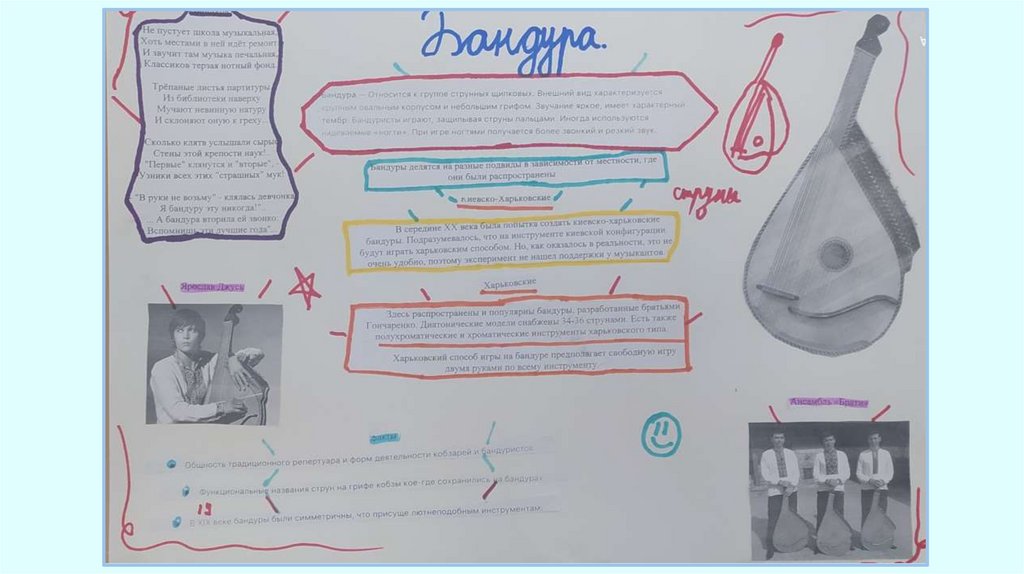 Бандура.
Не пустует школа музыкальная,
Хоть местами в ней идёт ремонт
И звучит там музыка печальная,
Классиков терзая нотный фонд.
Трёпаные листья партитуры
Из библиотеки наверху
Мучают невинную натуру
И склоняют оную к греху...
Сколько клятв услышали сырые
Стены этой крепости наук!..
"Первые" клянутся и "вторые", -
Узники всех этих "страшных" мук!
"В руки не возьму" - клялась девчонка,
Я бандуру эту никогда!"...
... А бандура вторила ей звонко:
Вспомнишь эти лучшие года"...
Бандура — Относится к группе струнных щипковых. Внешний вид характеризуется
крупным овальным корпусом и небольшим грифом. Звучание яркое, имеет характерный
тембр. Бандуристы играют, защипывая струны пальцами. Иногда используются
надеваемые «ногти». При игре ногтями получается более звонкий и резкий звук.
Бандуры делятся на разные подвиды в зависимости от местности, где
они были распространены
Киевско-Харьковские
В середине XX века была попытка создать киевско-харьковские
бандуры. Подразумевалось, что на инструменте киевской конфигурации
будут играть харьковским способом. Но, как оказалось в реальности, это не
очень удобно, поэтому эксперимент не нашел поддержки у музыкантов.
Харьковские
Здесь распространены и популярны бандуры, разработанные братьями
Гончаренко. Диатонические модели снабжены 34-36 струнами. Есть также
полухроматические и хроматические инструменты харьковского типа.
Харьковский способ игры на бандуре предполагает свободную игру
двумя руками по всему инструменту.
струны
Ярослав Джусь
Ансамбль «Брати»
факты
Общность традиционного репертуара и форм деятельности кобзарей и бандуристов.
Функциональные названия струн на грифе кобзы кое-где сохранились на бандурах
19
В XIX веке бандуры были симметричны, что присуще лютнеподобным инструментам.